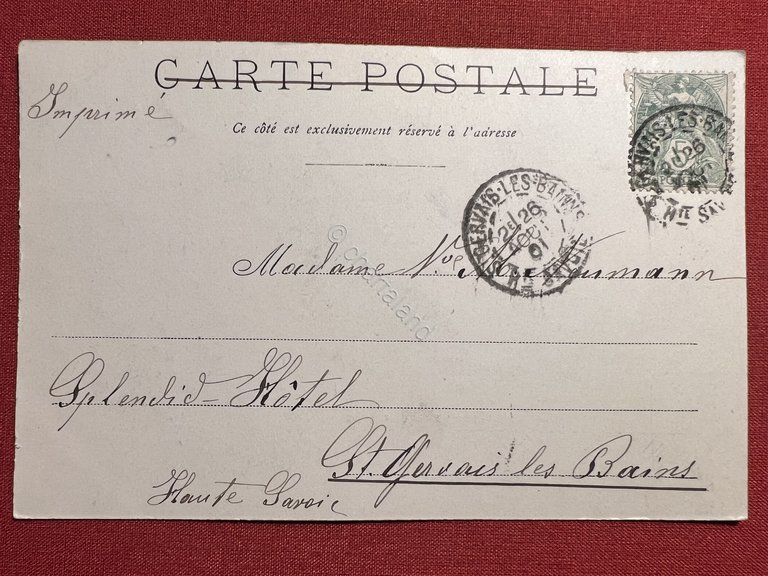 CARTE POSTALE
Imprimé
Ce côté est exclusivement réservé à l'adresse
ST GERVAIS-LES-BAINS
26
AOUT
01
HTE SAVOIE
GERVAIS-LES-BAINS
26
01
HTE SAV
© cherraland
Madame Vve
Splendid-Hôtel
St. Gervais les Bains
Haute Savoie